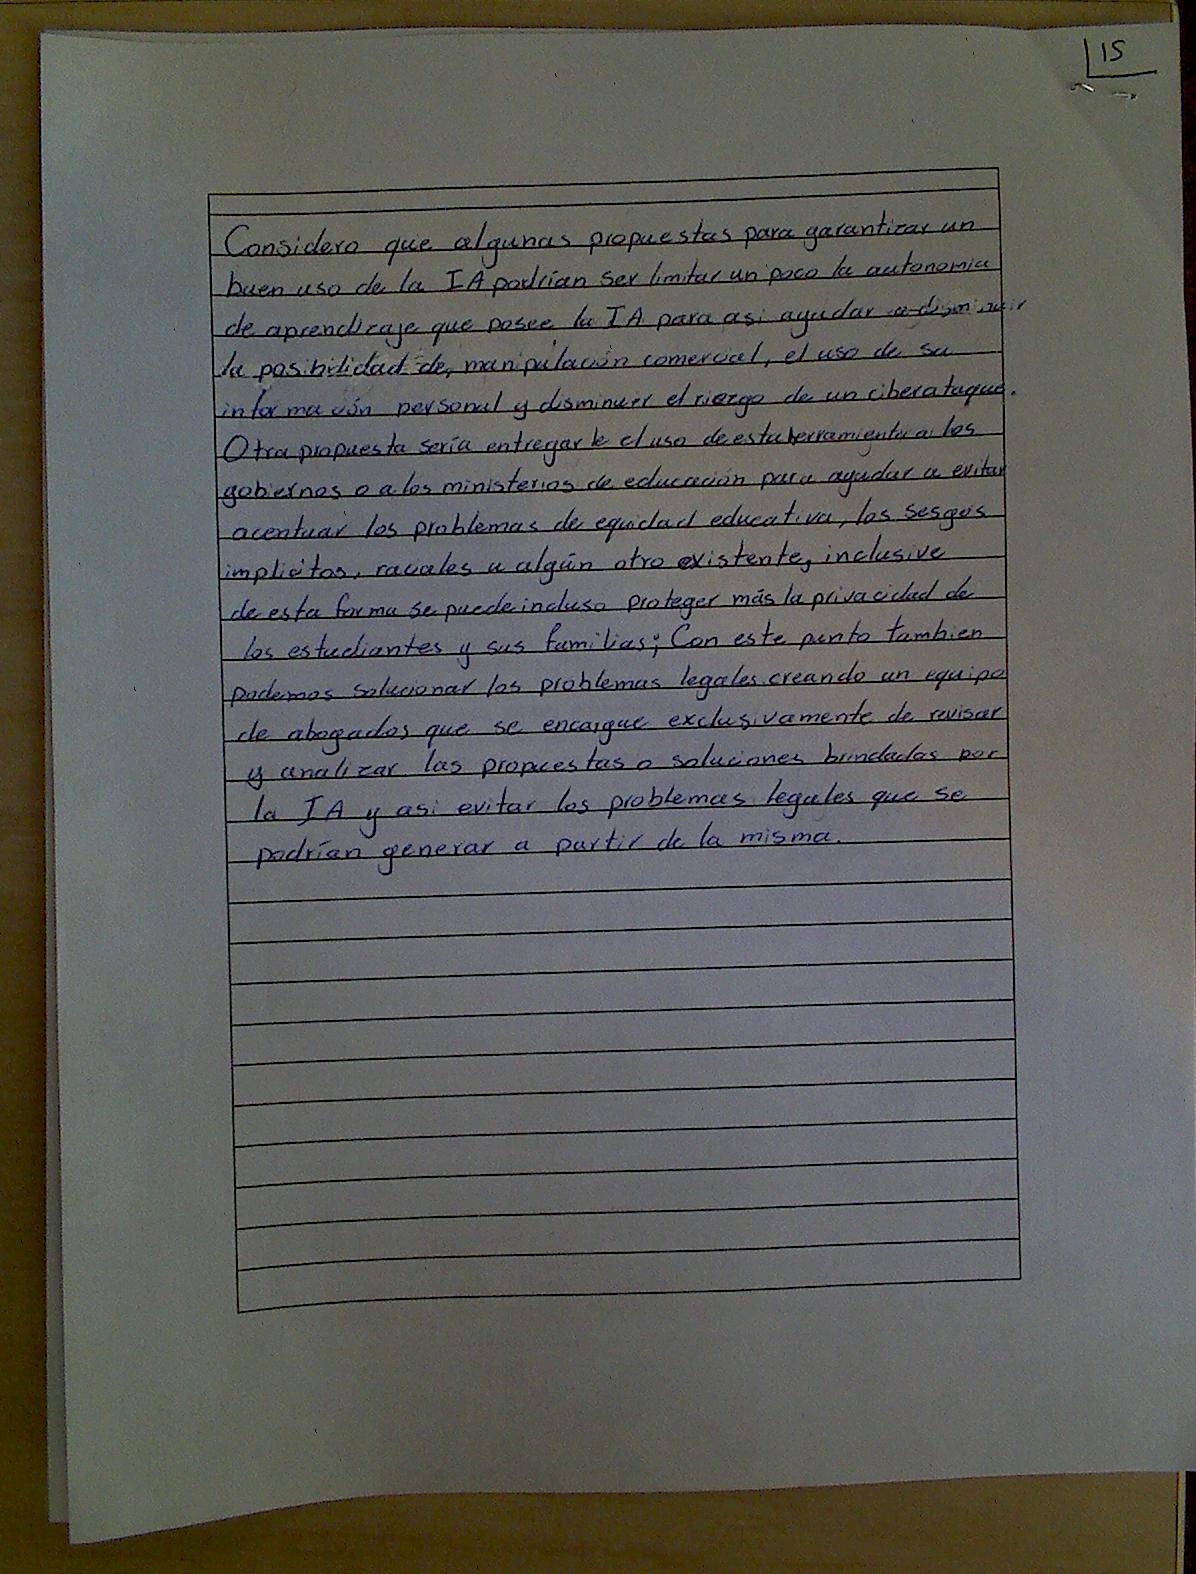 15
Considero que algunas propuestas para garantizar un
buen uso de la IA podrían ser limitar un poco la autonomia
de aprendizaje que posee la IA para asi ayudar a disminuir
la posibilidad de, manipulación comercial, el uso de su
información personal y disminuir el riezgo de un ciberataque.
Otra propuesta sería entregarle el uso de esta herramienta a los
gobiernos o a los ministerios de educación para ayudar a evitar
acentuar los problemas de equidad educativa, los sesgos
implicitos, raciales u algún otro existente, inclusive
de esta forma se puede incluso proteger más la privacidad de
los estudiantes y sus familias; Con este punto tambien
podemos solucionar los problemas legales creando un equipo
de abogados que se encargue exclusivamente de revisar
y analizar las propuestas o soluciones brindadas por
la IA y asi evitar los problemas legales que se
podrían generar a partir de la misma.